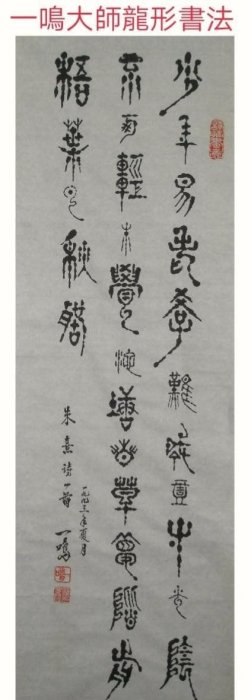 一鳴大師龍形書法
少年易老學難成壹寸光陰
不可輕未覺池塘春草夢階前
梧葉已秋聲
朱熹詩一首
年夏月
一鳴